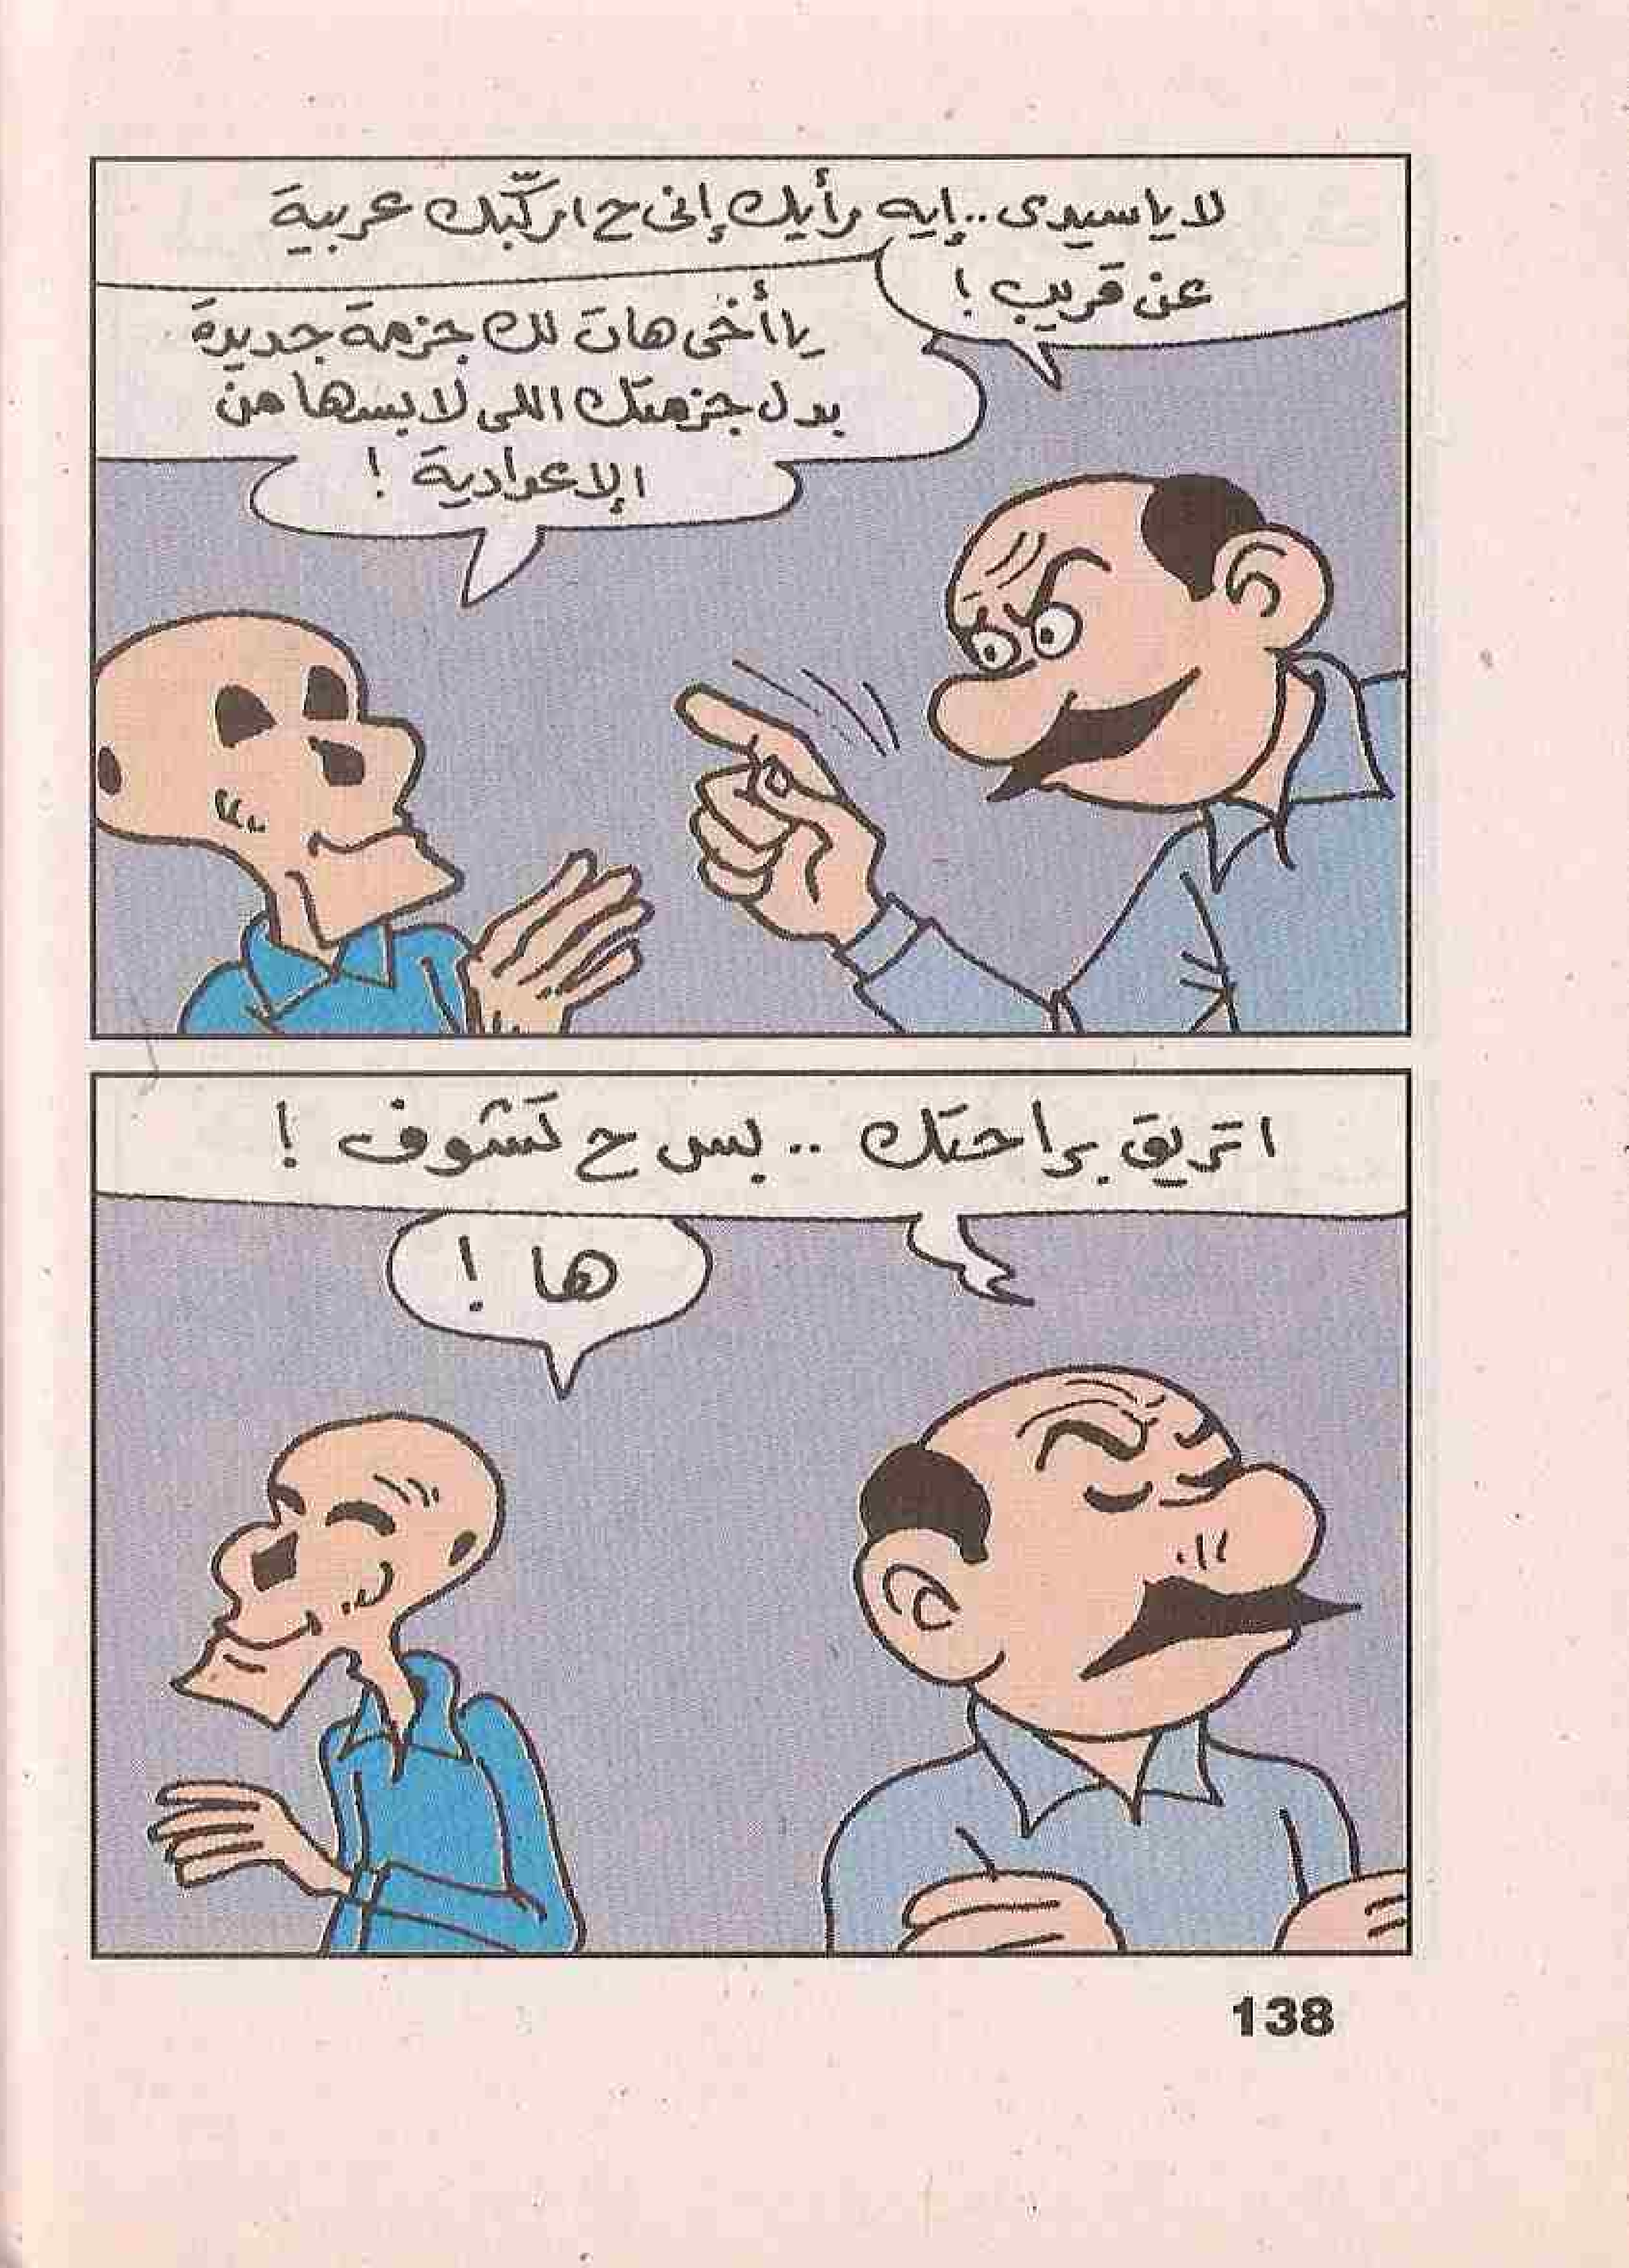 لا يا سيدى .. إيه رأيك إنى ح اركّبك عربية
عن قريب !
يا أخى هات لك جزمة جديدة
بدل جزمتك اللى لابسها من
الإعدادية !
اتريق براحتك .. بس ح تشوف !
ها !
138